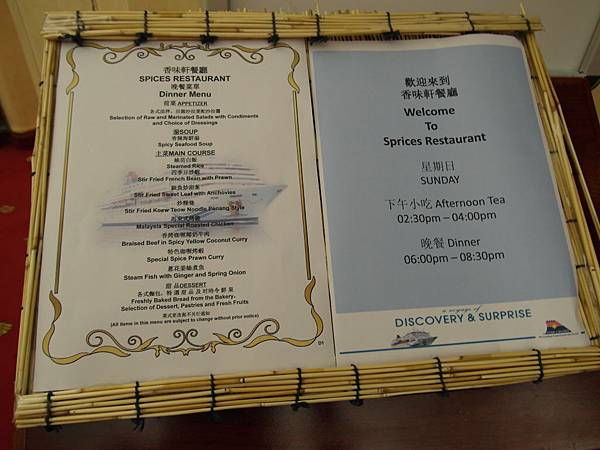 香味軒餐廳
SPICES RESTAURANT
晚餐菜單
Dinner Menu
前菜 APPETIZER
Selection of Raw and Marinated Salads with Condiments
and Choice of Dressings
湯SOUP
香辣海鮮湯
Spicy Seafood Soup
主菜MAIN COURSE
絲苗白飯
Steamed Rice
四季豆炒蝦
Stir Fried French Bean with Prawn
Stir Fried Sweet Leaf with Anchovies
炒粿條
Stir Fried Koew Teow Noodle Penang Style
Malaysia Special Roasted Chicken
香烤咖喱椰奶牛肉
Braised Beef in Spicy Yellow Coconut Curry
特色咖喱蝦
Special Spice Prawn Curry
薑花姜鮋煮魚
Steam Fish with Ginger and Spring Onion
甜品DESSERT
各式麵包，特選甜品及时令鮮果
Freshly Baked Bread from the Bakery,
Selection of Dessert, Pastries and Fresh Fruits
菜式更改恕不另行通知
(All items in this menu are subject to change without prior notice)
D1
歡迎來到
香味軒餐廳
Welcome
To
Sprices Restaurant
星期日
SUNDAY
下午小吃 Afternoon Tea
02:30pm – 04:00pm
晚餐 Dinner
06:00pm – 08:30pm
a voyage of
DISCOVERY & SURPRISE